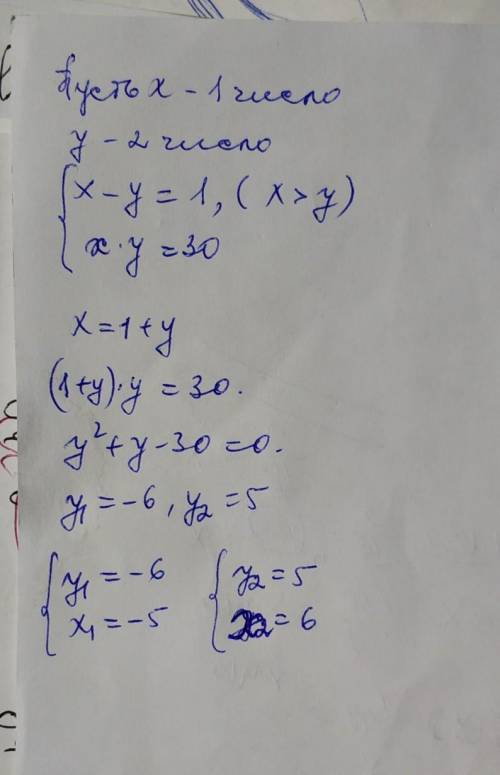 Пусть x – 1 число
y – 2 число
x – y = 1, ( x > y)
x · y = 30
x = 1 + y
(1+y)·y = 30.
y² + y – 30 = 0.
y₁ = –6, y₂ = 5
y₁ = –6 y₂ = 5
x₁ = –5 x₂ = 6